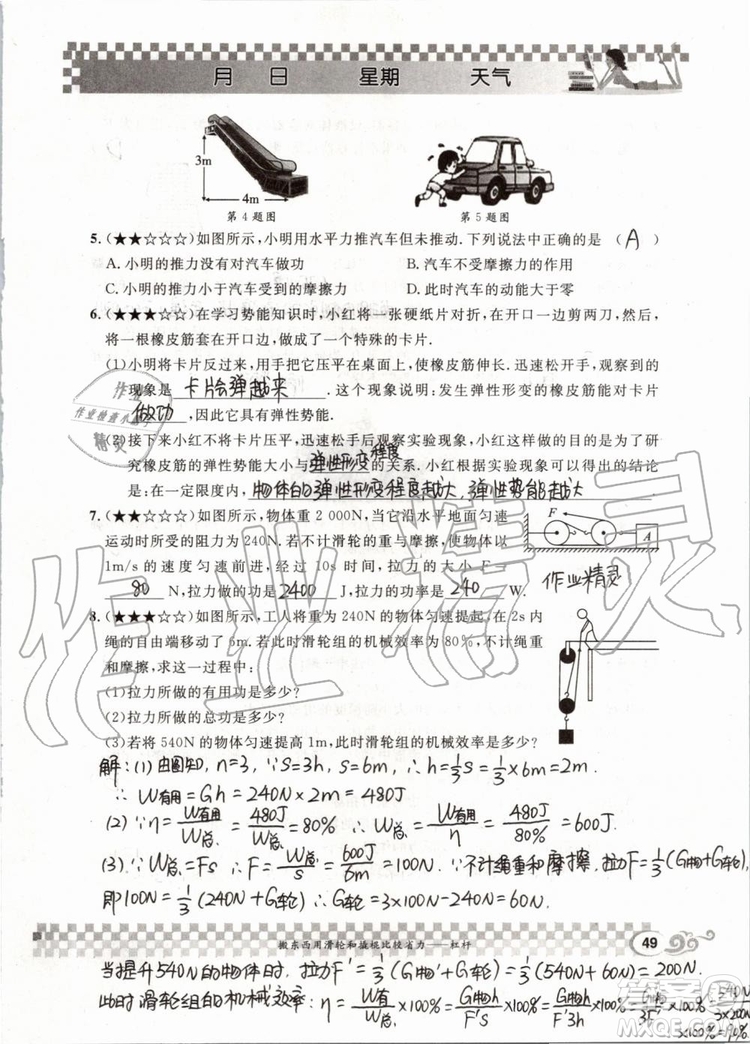 月 日 星期 天气
3m
4m
第4题图
第5题图
5.(★★☆☆☆)如图所示,小明用水平力推汽车但未推动.下列说法中正确的是 ( A )
A.小明的推力没有对汽车做功 B.汽车不受摩擦力的作用
C.小明的推力小于汽车受到的摩擦力 D.此时汽车的动能大于零
6.(★★★☆☆)在学习势能知识时,小红将一张硬纸片对折,在开口一边剪两刀,然后,
将一根橡皮筋套在开口边,做成了一个特殊的卡片.
(1)小明将卡片反过来,用手把它压平在桌面上,使橡皮筋伸长.迅速松开手,观察到的
现象是 卡片会弹越来 .这个现象说明:发生弹性形变的橡皮筋能对卡片
做功 ,因此它具有弹性势能.
(2)接下来小红将卡片压平,迅速松手后观察实验现象,小红这样做的目的是为了研
究橡皮筋的弹性势能大小与弹性形变程度的关系.小红根据实验现象,能得出的结论
是:在一定限度内, 物体的弹性形变程度越大,弹性势能越大 .
7.(★★☆☆☆)如图所示,物体重2 000N,当它沿水平地面匀速
运动时所受的阻力为240N.若不计滑轮的重与摩擦,使物体以
1m/s的速度匀速前进,经过10s时间,拉力的大小F=
80 N,拉力做的功是 2400 J,拉力的功率是 240 W.
F
A
作业精灵
8.(★★★☆☆)如图所示,工人将重240N的物体匀速提起,在2s内
绳的自由端移动了6m.若此时滑轮组的机械效率为80%,不计绳重
和摩擦,求这一过程中:
(1)拉力所做的有用功是多少?
(2)拉力所做的总功是多少?
(3)若将540N的物体匀速提高1m,此时滑轮组的机械效率是多少?
解:(1)由图知,n=3,∵S=3h,S=6m,∴h=1/3S=1/3×6m=2m.
∴W有用=Gh=240N×2m=480J
(2)∵η=W有用/W总=480J/W总=80% ∴W总=W有用/η=480J/80%=600J.
(3)∵W总=Fs ∴F=W总/s=600J/6m=100N.∵不计绳重和摩擦,拉力F=1/3(G物+G轮),
即100N=1/3(240N+G轮) ∴G轮=60N,
搬东西用滑轮和撬棍比较省力——杠杆 49
当提升540N的物体时,拉力F'=1/3(G物'+G轮)=200N.
此时滑轮组的机械效率:η=W有/W总×100%=G物h/F's×100%=G物h/F'3h×100%=G物/3F'×100%=540N/3×200N
×100%=90%
作业精灵